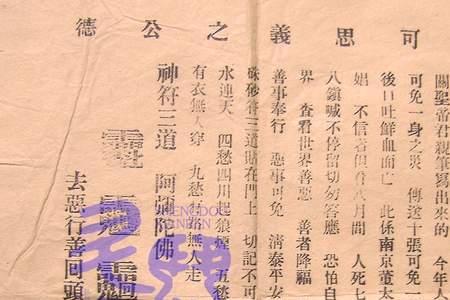 可思義之公德
關聖帝君親筆寫出來的 今年人
可免一身之災 傳送十張可免一
後口吐鮮血而亡 此係南京董太
娼 不信者但看八月間 人死七
八鎮喊不停留切勿答應 恐怕自
界 查看世界善惡 善者降福
善事奉行 惡事可免 清泰平安
硃砂符三道貼在門上 切記不可
水連天 四愁四川起狼煙 五愁
有衣無人穿 九愁有路無人走
神符三道 阿彌陀佛
去惡行善回頭